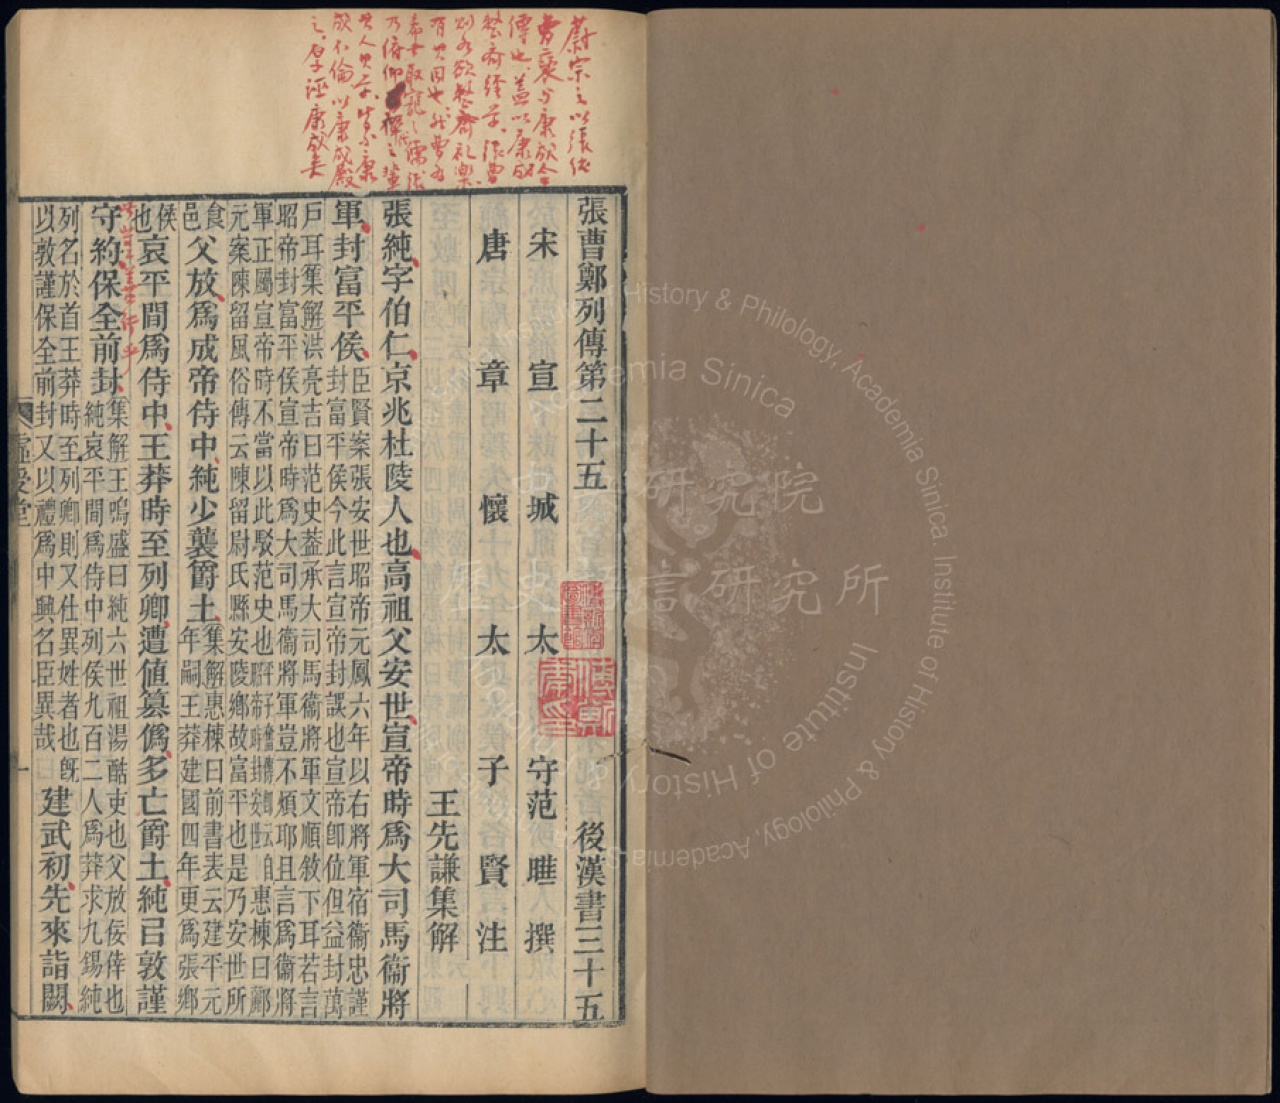 張曹鄭列傳第二十五　後漢書三十五
宋宣城太守范曄撰
唐章懷太子賢注
王先謙集解
張純字伯仁京兆杜陵人也高祖父安世宣帝時爲大司馬衞將
軍封富平侯臣賢案張安世昭帝元鳳六年以右將軍宿衞忠謹
封富平侯今此言宣帝封誤也宣帝卽位但益封萬
戶耳集解洪亮吉曰范史葢承大司馬衞將軍文順敘下耳若言
昭帝封富平侯宣帝時爲大司馬衞將軍豈不煩耶且言爲衞將
軍正屬宣帝時不當以此駁范史也
惠棟曰酈
元案陳留風俗傳云陳留尉氏縣安陵鄉故富平也是乃安世所
食
邑父放爲成帝侍中純少襲爵土集解惠棟曰前書表云建平元
年嗣王莽建國四年更爲張鄉
侯
也哀平間爲侍中王莽時至列卿遭值篡僞多亡爵土純㠯敦謹
守約保全前封集解王鳴盛曰純六世祖湯酷吏也父放佞倖也
純哀平間爲侍中列侯九百二人爲莽求九錫純
列名於首王莽時至列卿則又仕異姓者也旣
以敦謹保全前封又以禮爲中興名臣異哉建武初先來詣闕
虛受堂
一
蔚宗之以張純
曹褒与康成合
傳也蓋以康成
乃俯仰
之辈
歷史語言研究所
研究院
Institute of History & Philology, Academia Sinica.